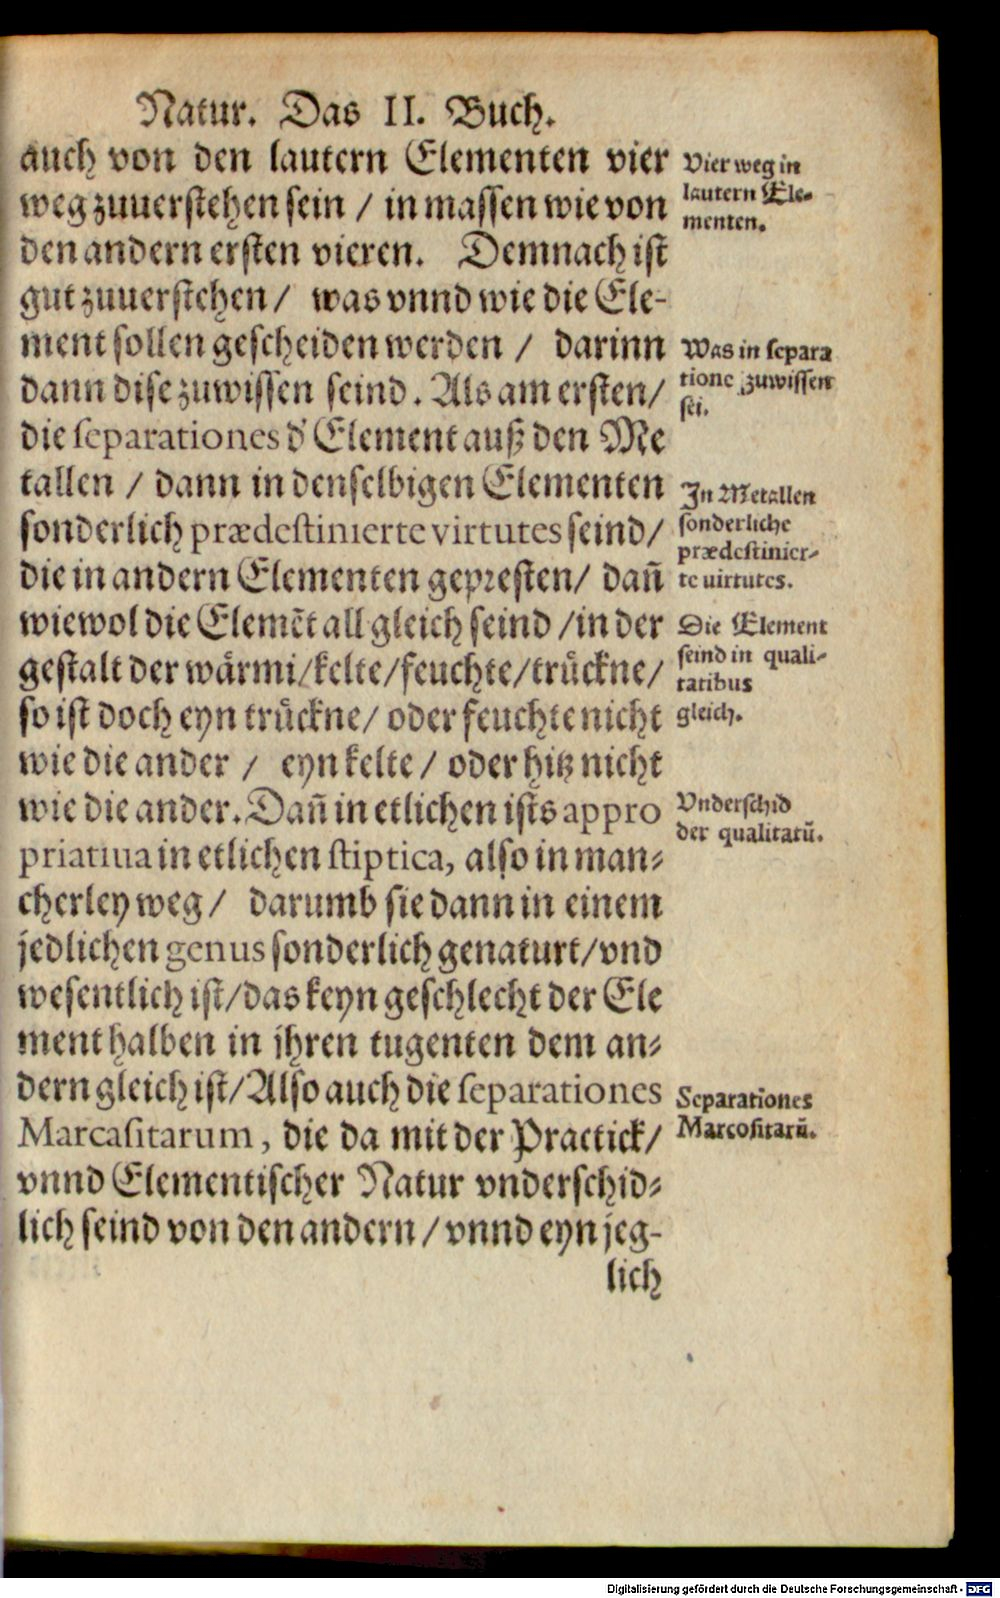 Natur. Das II. Buch.
auch von den lautern Elementen vier
weg zuuerstehen sein / in massen wie von
den andern ersten vieren. Demnach ist
gut zuuerstehen / was vnnd wie die Ele-
ment sollen gescheiden werden / darinn
dann dise zuwissen seind. Als am ersten /
die separationes d' Element auß den Me
tallen / dann in denselbigen Elementen
sonderlich prædestinierte virtutes seind /
die in andern Elementen gepresten / dañ
wiewol die Elemēt all gleich seind / in der
gestalt der waͤrmi / kelte / feuchte / truͤckne /
so ist doch eyn truͤckne / oder feuchte nicht
wie die ander / eyn kelte / oder hitz nicht
wie die ander. Dañ in etlichen ists appro
priatiua in etlichen stiptica, also in man-
cherley weg / darumb sie dann in einem
jedlichen genus sonderlich genaturt / vnd
wesentlich ist / das keyn geschlecht der Ele
ment halben in jhren tugenten dem an-
dern gleich ist / Also auch die separationes
Marcasitarum, die da mit der Practick /
vnnd Elementischer Natur vnderschid-
lich seind von den andern / vnnd eyn jeg-
lich
Vier weg in
lautern Ele-
menten.
Was in separa
tione zuwissen
sei.
In Metallen
sonderliche
prædestinier-
te uirtutes.
Die Element
seind in quali-
tatibus
gleich.
Vnderschid
der qualitatū.
Separationes
Marcositarū.
Digitalisierung gefördert durch die Deutsche Forschungsgemeinschaft - DFG